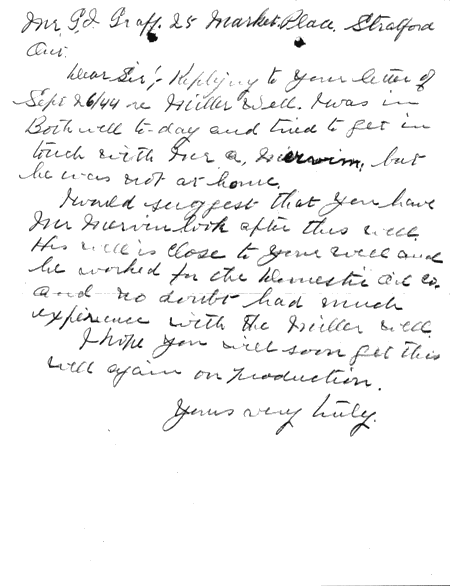 Mr. G.I. Graff. 25 Market Place. Stratford
Ont.
Dear Sir/- Replying to your letter of
Sept 26/44 re Miller Well. I was in
Bothwell to-day and tried to get in
touch with Mr. a. Mervin, but
he was not at home.
I would suggest that you have
Mr Mervin look after this well.
His well is close to your well and
he worked for the Domestic Oil Co.
and no doubt had much
experience with the Miller well.
I hope you will soon get this
well again on production.
Yours very truly.